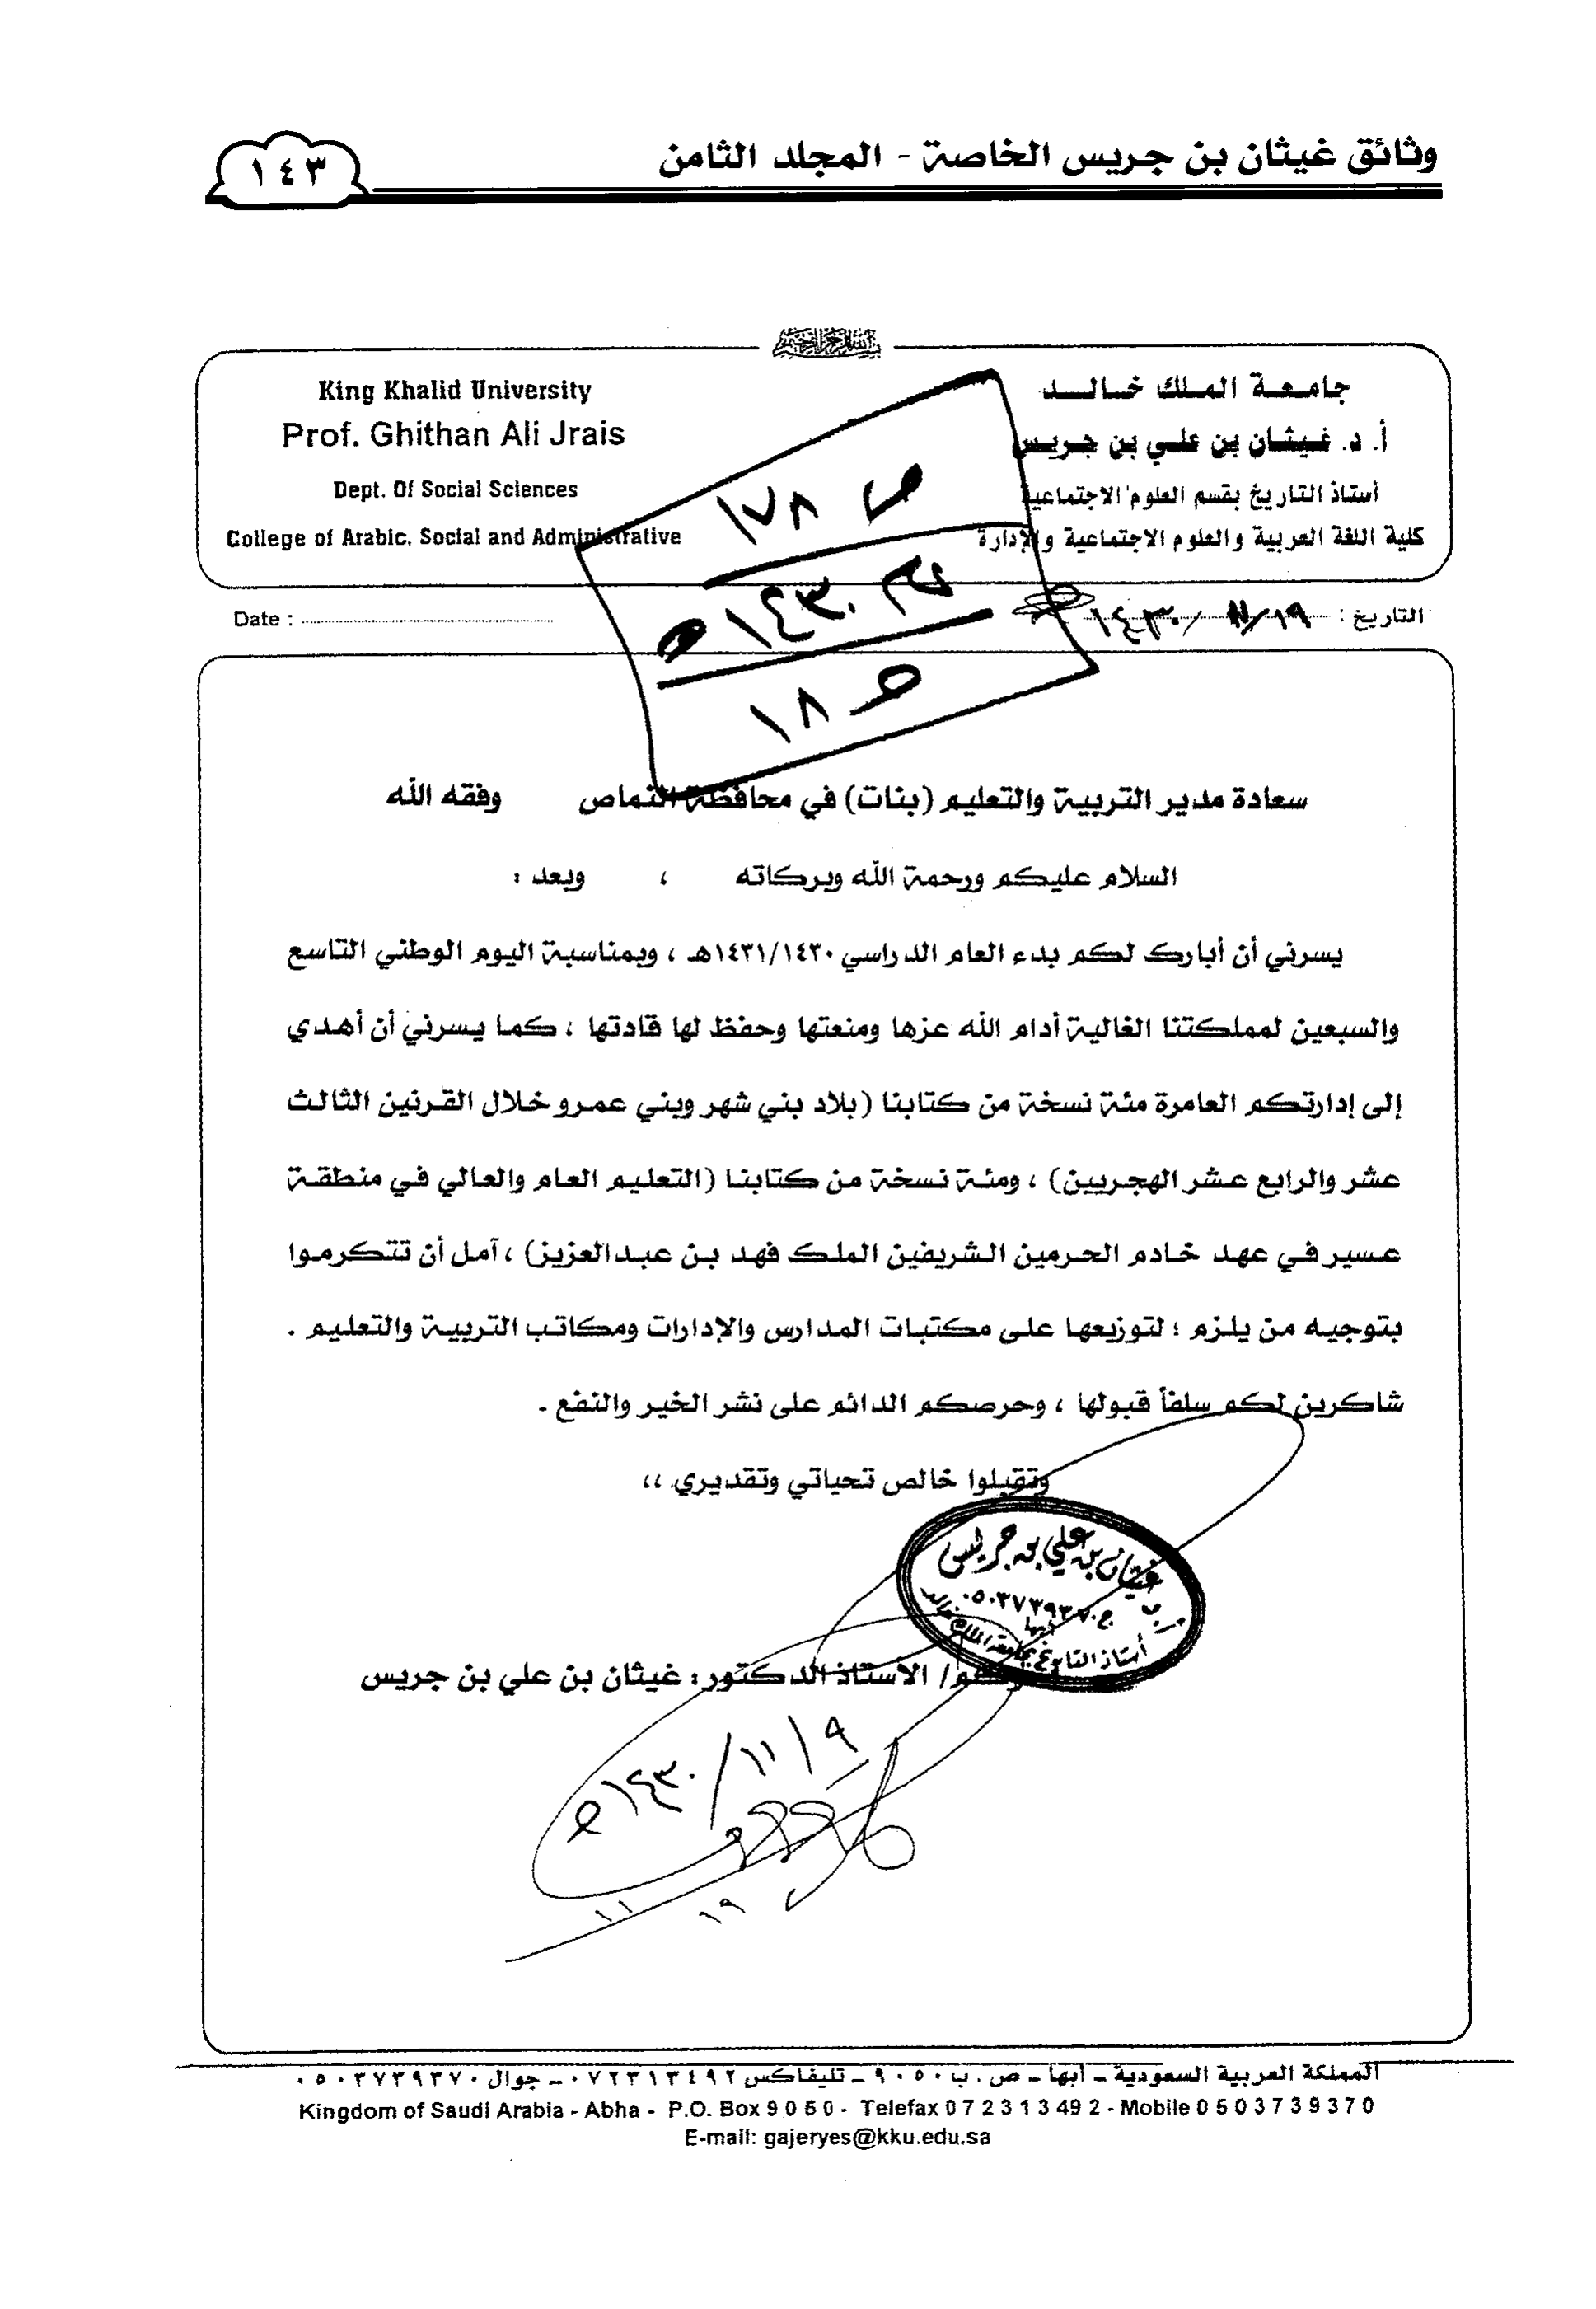 وثائق غيثان بن جريس الخاصة - المجلد الثامن
١٤٣
بسم الله الرحمن الرحيم
جامعة الملك خالد
أ. د. غيثان بن علي بن جريس
أستاذ التاريخ بقسم العلوم الاجتماعية
كلية اللغة العربية والعلوم الاجتماعية والإدارة
King Khalid University
Prof. Ghithan Ali Jrais
Dept. Of Social Sciences
College of Arabic, Social and Administrative
ص ١٧٨
م ١٤٣٠هـ
١٨
التاريخ : ١٩/ ١١/ ١٤٣٠
Date :
سعادة مدير التربية والتعليم (بنات) في محافظة النماص وفقه الله
السلام عليكم ورحمة الله وبركاته ، وبعد :
يسرني أن أبارك لكم بدء العام الدراسي ١٤٣١/١٤٣٠هـ ، وبمناسبة اليوم الوطني التاسع
والسبعين لمملكتنا الغالية أدام الله عزها ومنعتها وحفظ لها قادتها ، كما يسرني أن أهدي
إلى إدارتكم العامرة مئة نسخة من كتابنا (بلاد بني شهر وبني عمرو خلال القرنين الثالث
عشر والرابع عشر الهجريين) ، ومئة نسخة من كتابنا (التعليم العام والعالي في منطقة
عسير في عهد خادم الحرمين الشريفين الملك فهد بن عبدالعزيز) ، آمل أن تتكرموا
بتوجيه من يلزم ؛ لتوزيعها على مكتبات المدارس والإدارات ومكاتب التربية والتعليم .
شاكرين لكم سلفاً قبولها ، وحرصكم الدائم على نشر الخير والنفع .
وتقبلوا خالص تحياتي وتقديري ،،
غيثان بن علي بن جريس
ج ٠٥٠٣٧٣٩٣٧٠
أبها
أستاذ التاريخ بجامعة الملك خالد
الأستاذ الدكتور: غيثان بن علي بن جريس
٩/ ١١/ ١٤٣٠هـ
١٩ ١١
المملكة العربية السعودية - أبها - ص . ب ٩٠٥٠ - تليفاكس ٠٧٢٣١٣٤٩٢ - جوال ٠٥٠٣٧٣٩٣٧٠
Kingdom of Saudi Arabia - Abha - P.O. Box 9 0 5 0 - Telefax 0 7 2 3 1 3 49 2 - Mobile 0 5 0 3 7 3 9 3 7 0
E-mail: gajeryes@kku.edu.sa